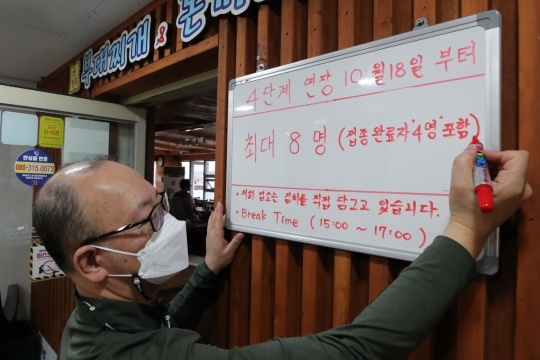 부대찌개 &
안심콜 번호
080-315-0073
4단계 연장 10월 18일 부터
최대 8명 (접종완료자 "4명" 포함)
• 저희 업소는 김치를 직접 담그고 있습니다.
• Break Time ( 15:00 ~ 17:00 )